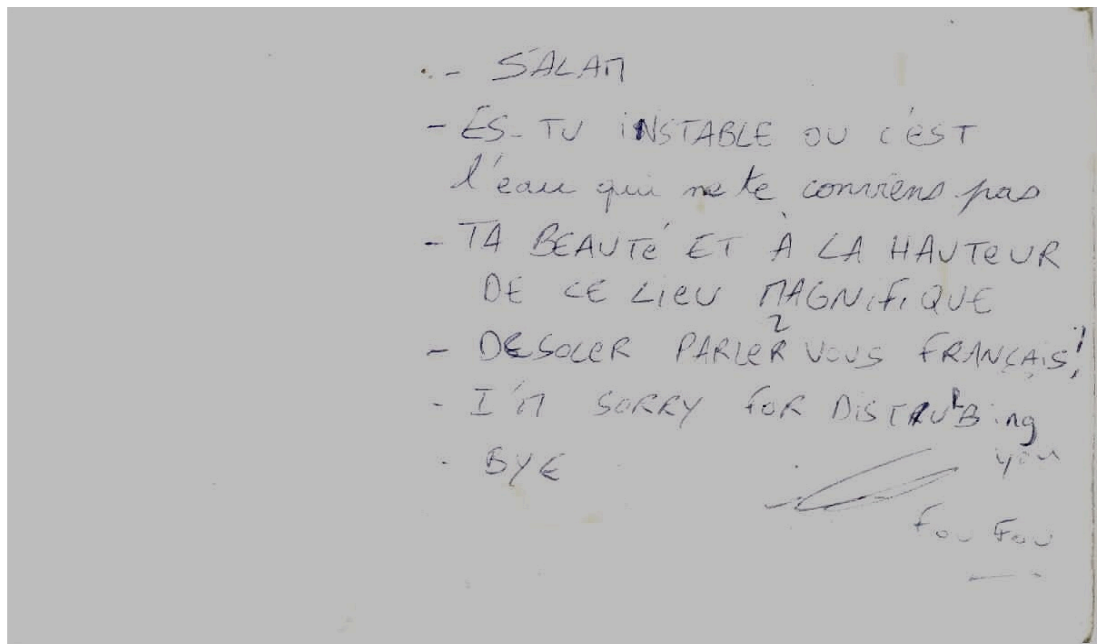 - SALAM
- ES-TU INSTABLE OU C'EST
l'eau qui ne te conviens pas
- TA BEAUTÉ ET À LA HAUTEUR
DE CE LIEU MAGNIFIQUE
- DESOLER PARLER VOUS FRANÇAIS!
- I'M SORRY FOR DISTRUBing
you
- BYE
Fou Fou